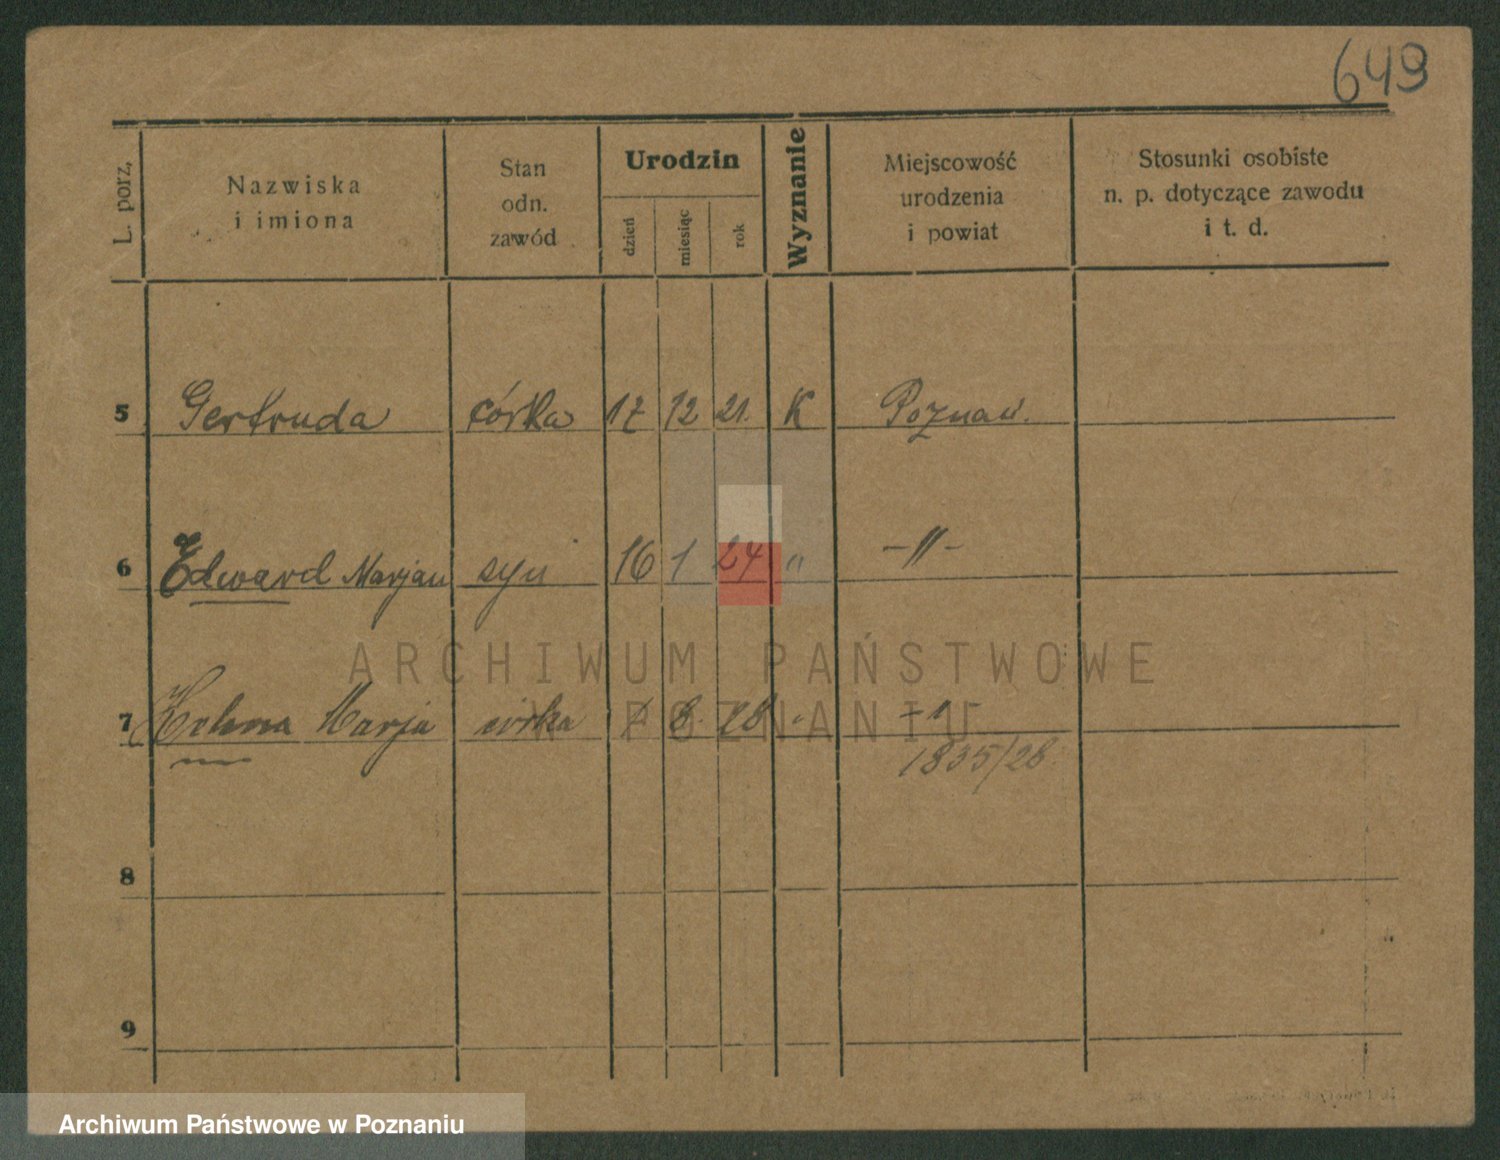 649
L. porz.
Nazwiska
i imiona
Stan
odn.
zawód
Urodzin
dzień
miesiąc
rok
Wyznanie
Miejscowość
urodzenia
i powiat
Stosunki osobiste
n. p. dotyczące zawodu
i t. d.
5 Gertruda córka 17 12 21. K Poznań.
6 Edward Marjan syn 16 1 24 " -"-
7 Helena Marja córka 8. 28 " -"-
1835/28.
8
9
ARCHIWUM PAŃSTWOWE
W POZNANIU
Archiwum Państwowe w Poznaniu